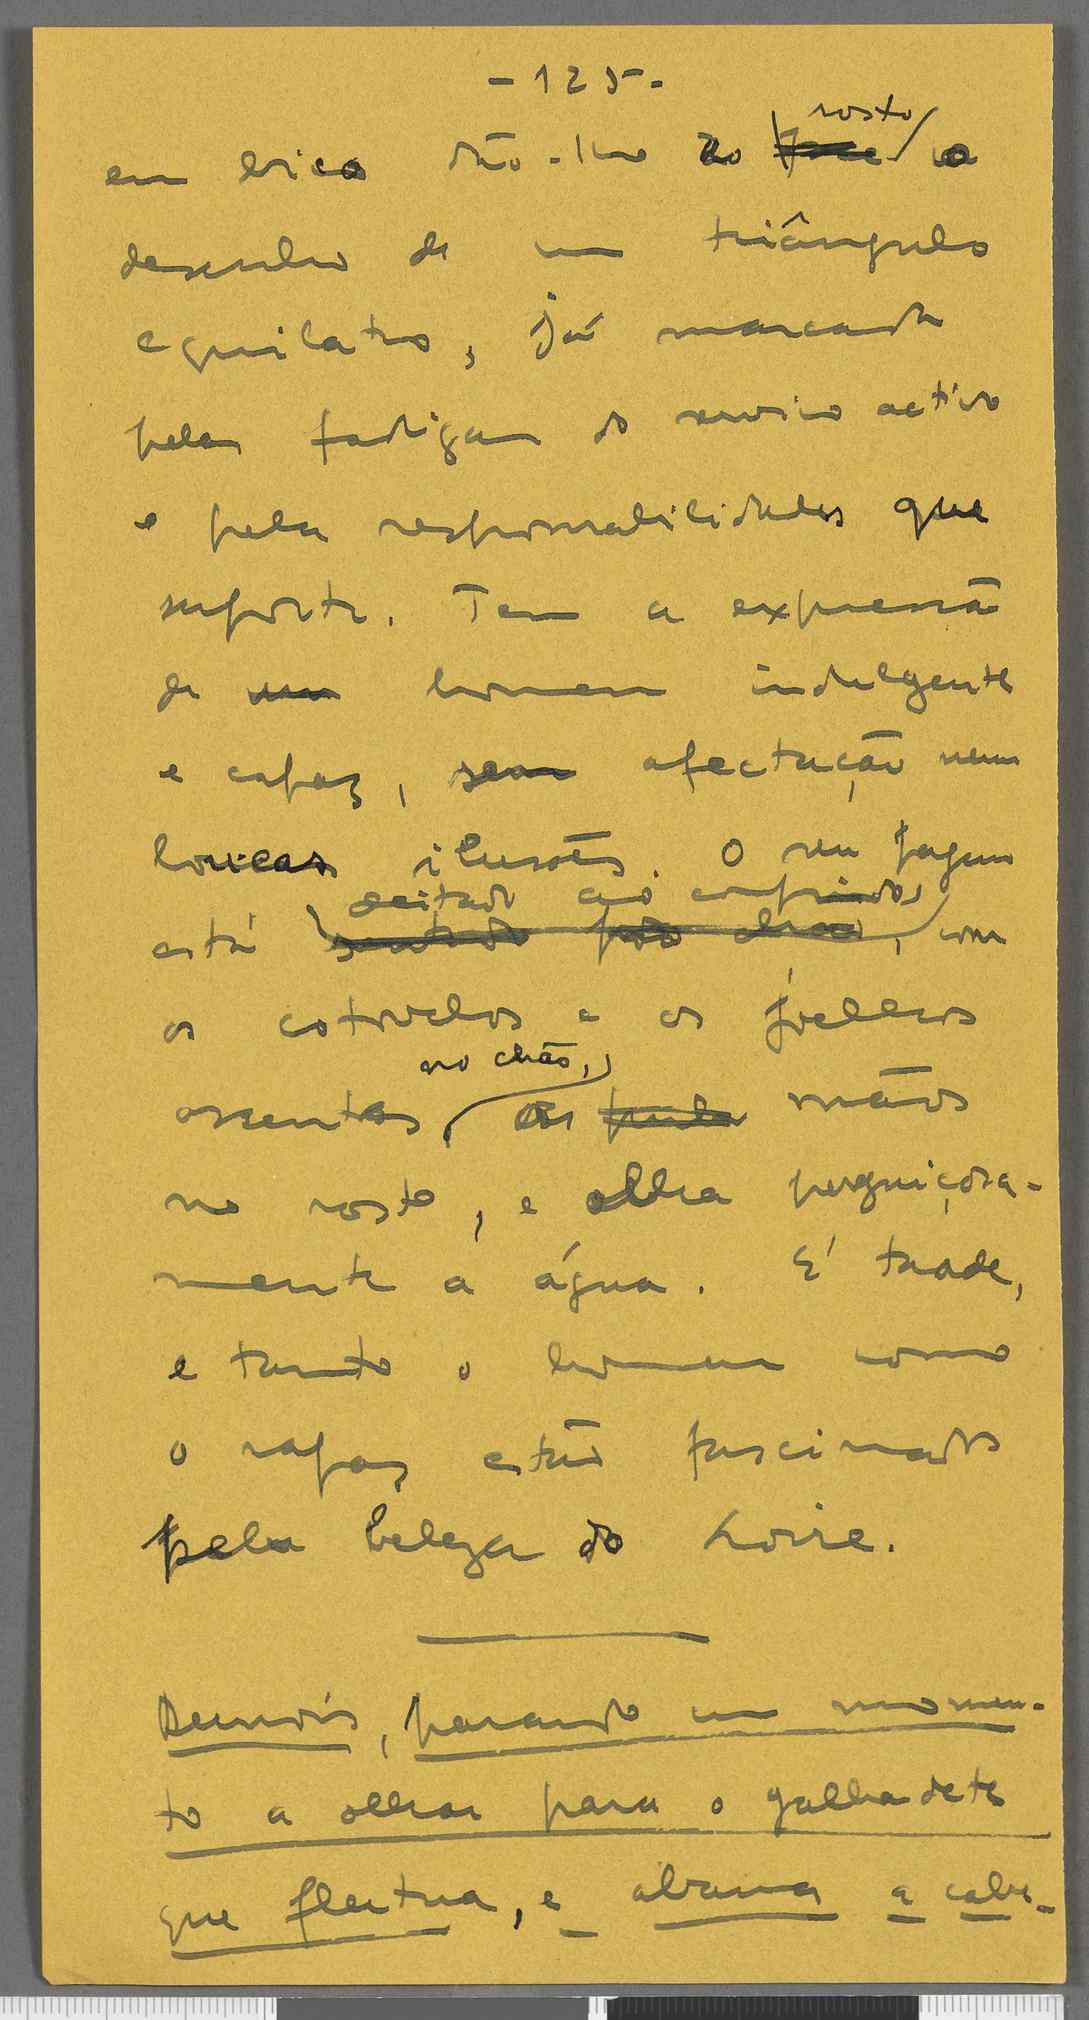 - 125 -
rosto
em bico dão-lhe ao face o
desenho de um triângulo
equilatro, já marcado
pelas fadigas do serviço activo
e pelas responsabilidades que
suporta. Tem a expressão
de um homem indulgente
e capaz, sem afectação nem
loucas ilusões. O seu pagem
deitado ao comprido,
está sentado no chão, com
os cotovelos e os joelhos
no chão,
assentes, as mãos
no rosto, e olha preguiçosa-
mente a água. E' tarde,
e tanto o homem como
o rapaz estão fascinados
pela beleza do Loire.
Dunois, parando um momen-
to a olhar para o galhardete
que flutua, e abana a cabe-